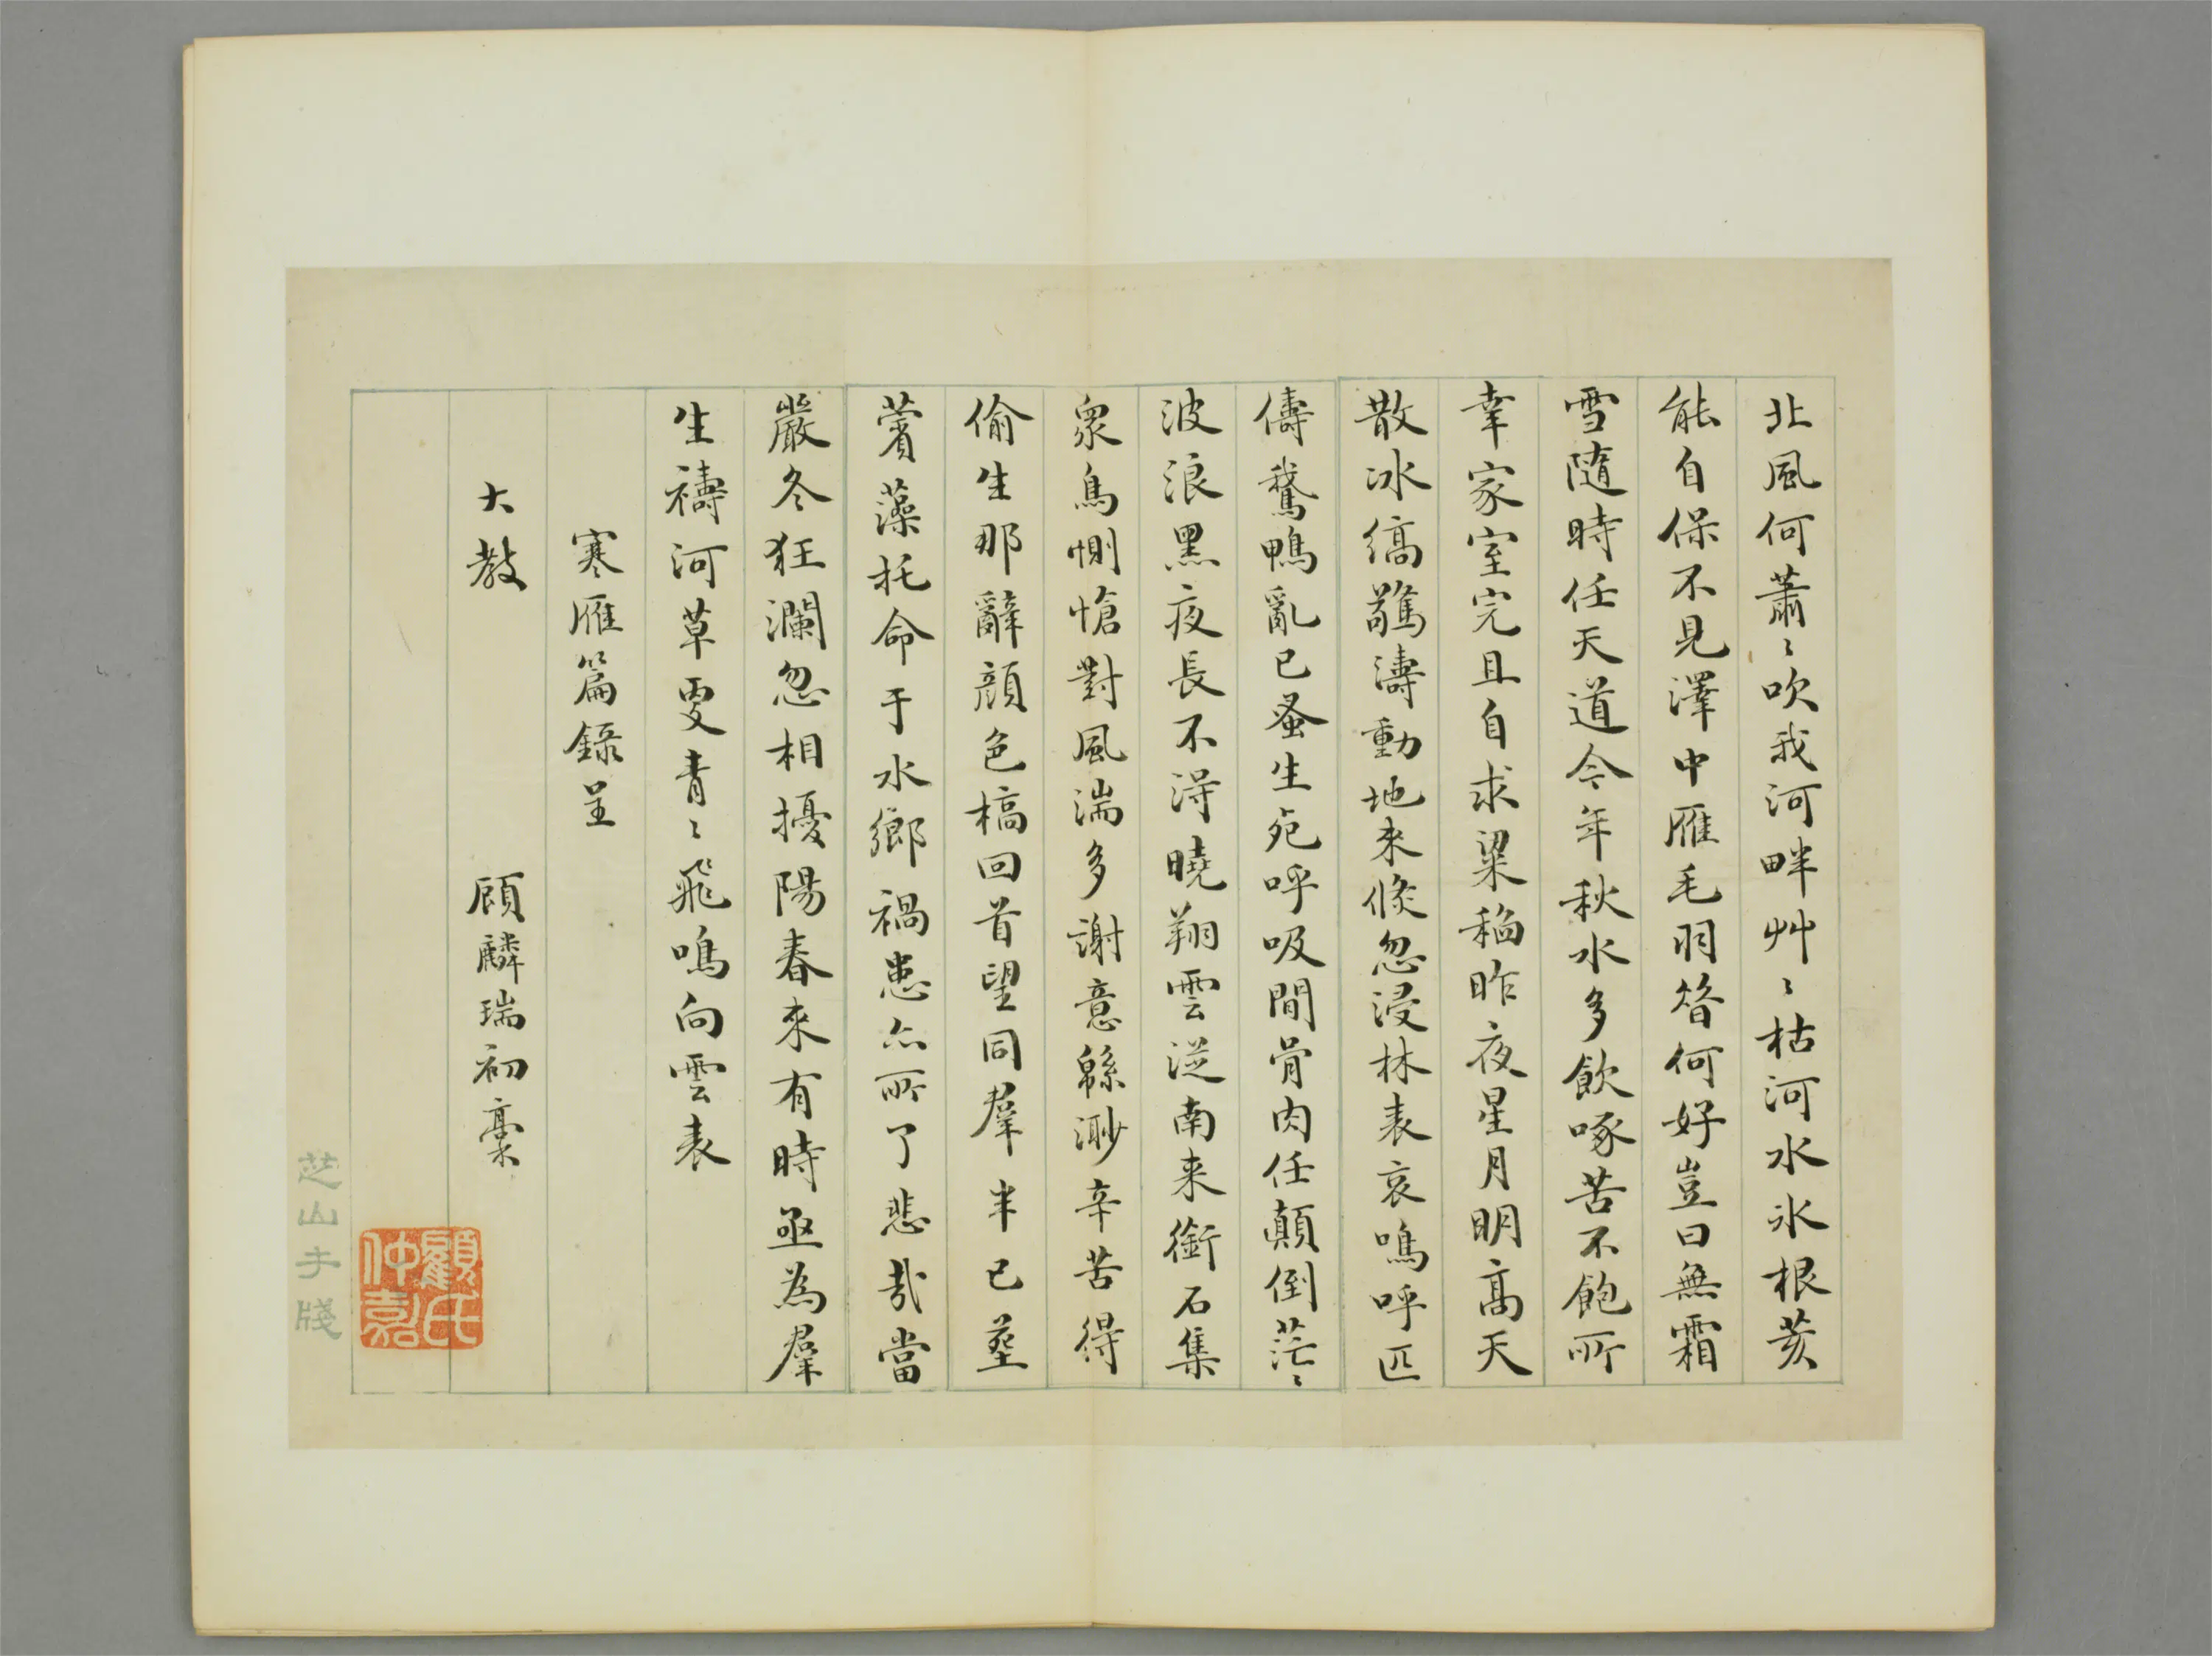 北風何蕭〻吹我河畔艸〻枯河水冰根荄
能自保不見澤中雁毛羽咎何好豈曰無霜
雪隨時任天道今年秋水多飲啄苦不飽所
幸家室完且自求粱稻昨夜星月明高天
散冰縞驚濤動地來倏忽浸林表哀鳴呼匹
儔鵞鴨亂已蚤生死呼吸間骨肉任顛倒茫〻
波浪黑夜長不得曉翔雲從南来銜石集
衆鳥惻愴對風湍多謝意緜渺辛苦得
偷生那辭顔色槁回首望同羣半已葬
蘋藻托命于水鄉禍患亦所了悲哉當
嚴冬狂瀾忽相擾陽春來有時亟為羣
生禱河草更青〻飛鳴向雲表
寒雁篇錄呈
大教
顧麟瑞初稾
顧氏仲嘉
芝山手牋